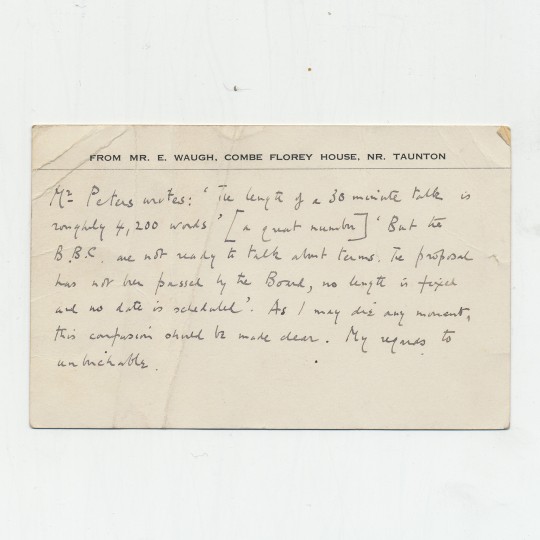 FROM MR. E. WAUGH, COMBE FLOREY HOUSE, NR. TAUNTON
Mr Peters writes: 'The length of a 30 minute talk is
roughly 4,200 words' [a great number] 'But the
B.B.C. are not ready to talk about terms. The proposal
has not been passed by the Board, no length is fixed
and no date is scheduled'. As I may die any moment,
this confusion should be made clear. My regards to